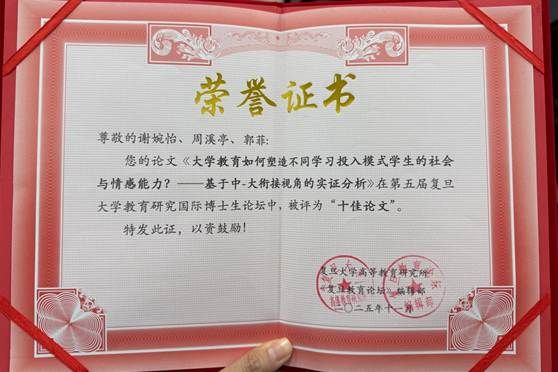 荣誉证书
尊敬的谢婉怡、周溪亭、郭菲:
您的论文《大学教育如何塑造不同学习投入模式学生的社会
与情感能力？——基于中-大衔接视角的实证分析》在第五届复旦
大学教育研究国际博士生论坛中，被评为“十佳论文”。
特发此证，以资鼓励！
复旦大学高等教育研究所
《复旦教育论坛》编辑部
二〇二五年十一月